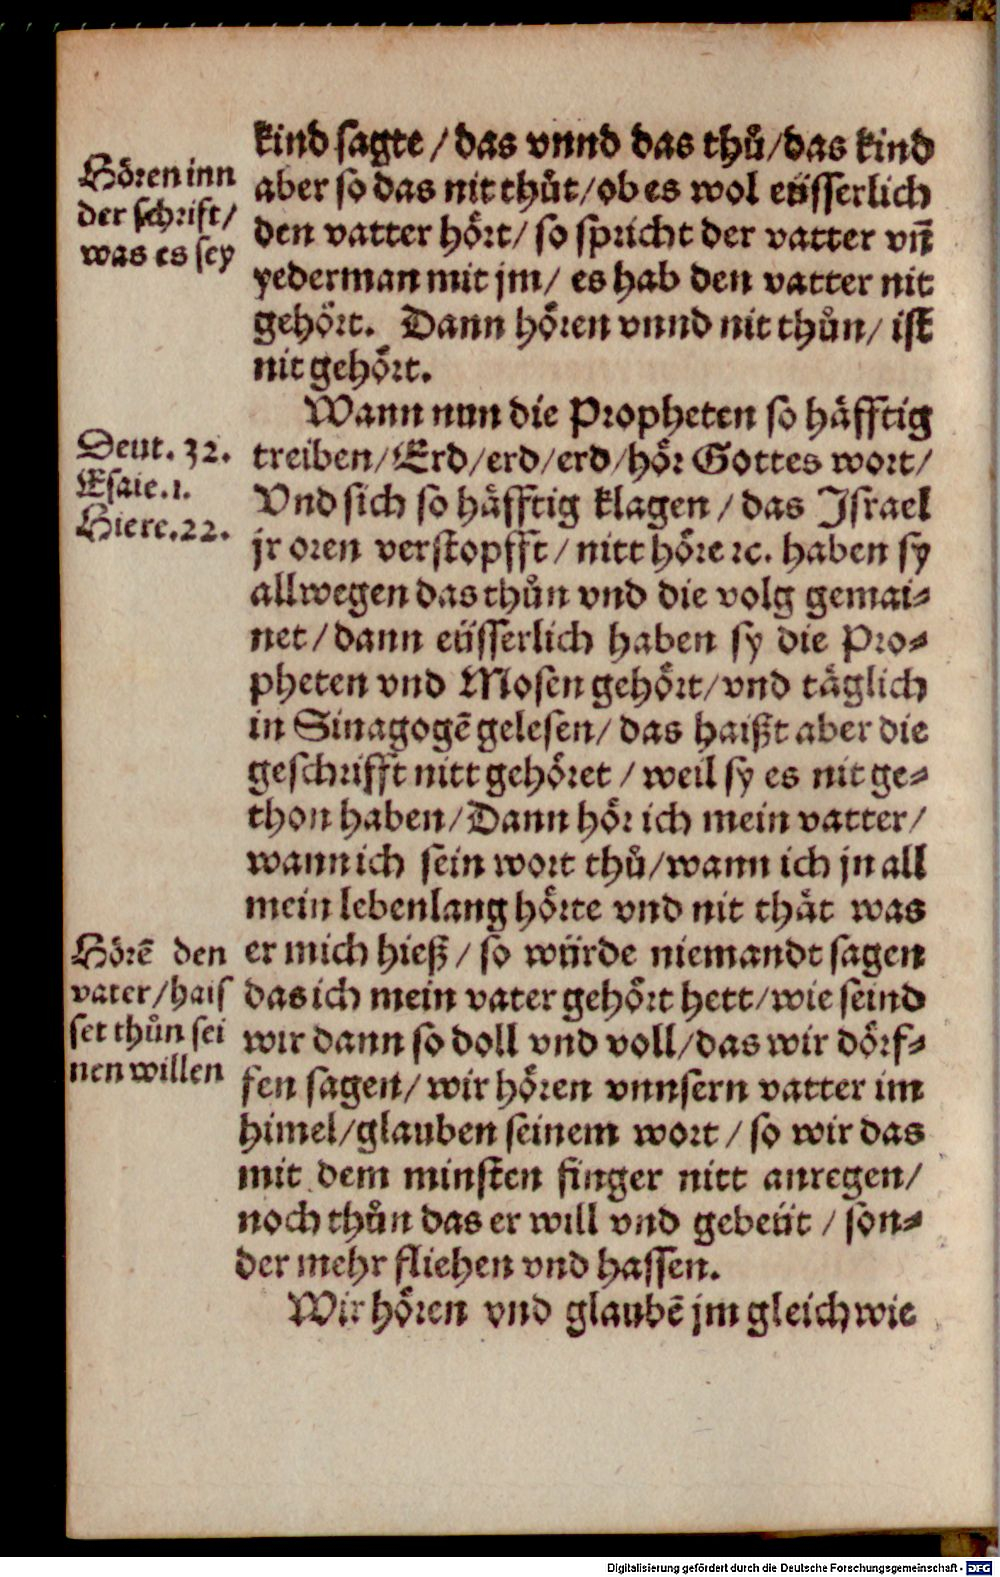 kind sagte / das vnnd das thů/das kind
aber so das nit thůt/ob es wol eüsserlich
den vatter hört/ so spricht der vatter vn̄
yederman mit jm/ es hab den vatter nit
gehört. Dann hören vnnd nit thůn/ ist
nit gehört.
Hören inn
der schrift/
was es sey
Wann nun die Propheten so häfftig
treiben/Erd/erd/erd/hör Gottes wort/
Vnd sich so häfftig klagen / das Israel
jr oren verstopfft / nitt höre ꝛc. haben sy
allwegen das thůn vnd die volg gemai⸗
net / dann eüsserlich haben sy die Pro⸗
pheten vnd Mosen gehört/vnd täglich
in Sinagogē gelesen/ das haißt aber die
geschrifft nitt gehöret / weil sy es nit ge⸗
thon haben/Dann hör ich mein vatter/
wann ich sein wort thů/wann ich jn all
mein lebenlang hörte vnd nit thät was
er mich hieß / so würde niemandt sagen
das ich mein vater gehört hett/wie seind
wir dann so doll vnd voll/das wir dörf⸗
fen sagen/ wir hören vnnsern vatter im
himel/glauben seinem wort / so wir das
mit dem minsten finger nitt anregen/
noch thůn das er will vnd gebeüt / son⸗
der mehr fliehen vnd hassen.
Deut. 32.
Esaie.1.
Hiere.22.
Hörē den
vater/hais
set thůn sei
nen willen
Wir hören vnd glaubē jm gleich wie
Digitalisierung gefördert durch die Deutsche Forschungsgemeinschaft - DFG